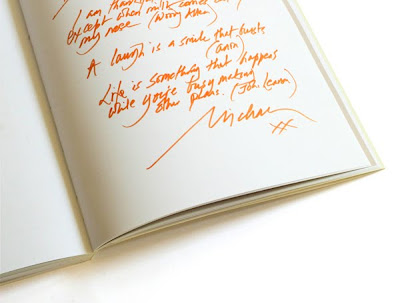 I am thankful
except when milk comes out
my nose (Woody Allen)
A laugh is a smile that bursts
(anon)
Life is something that happens
while you're busy making
other plans. (John Lennon)
xx